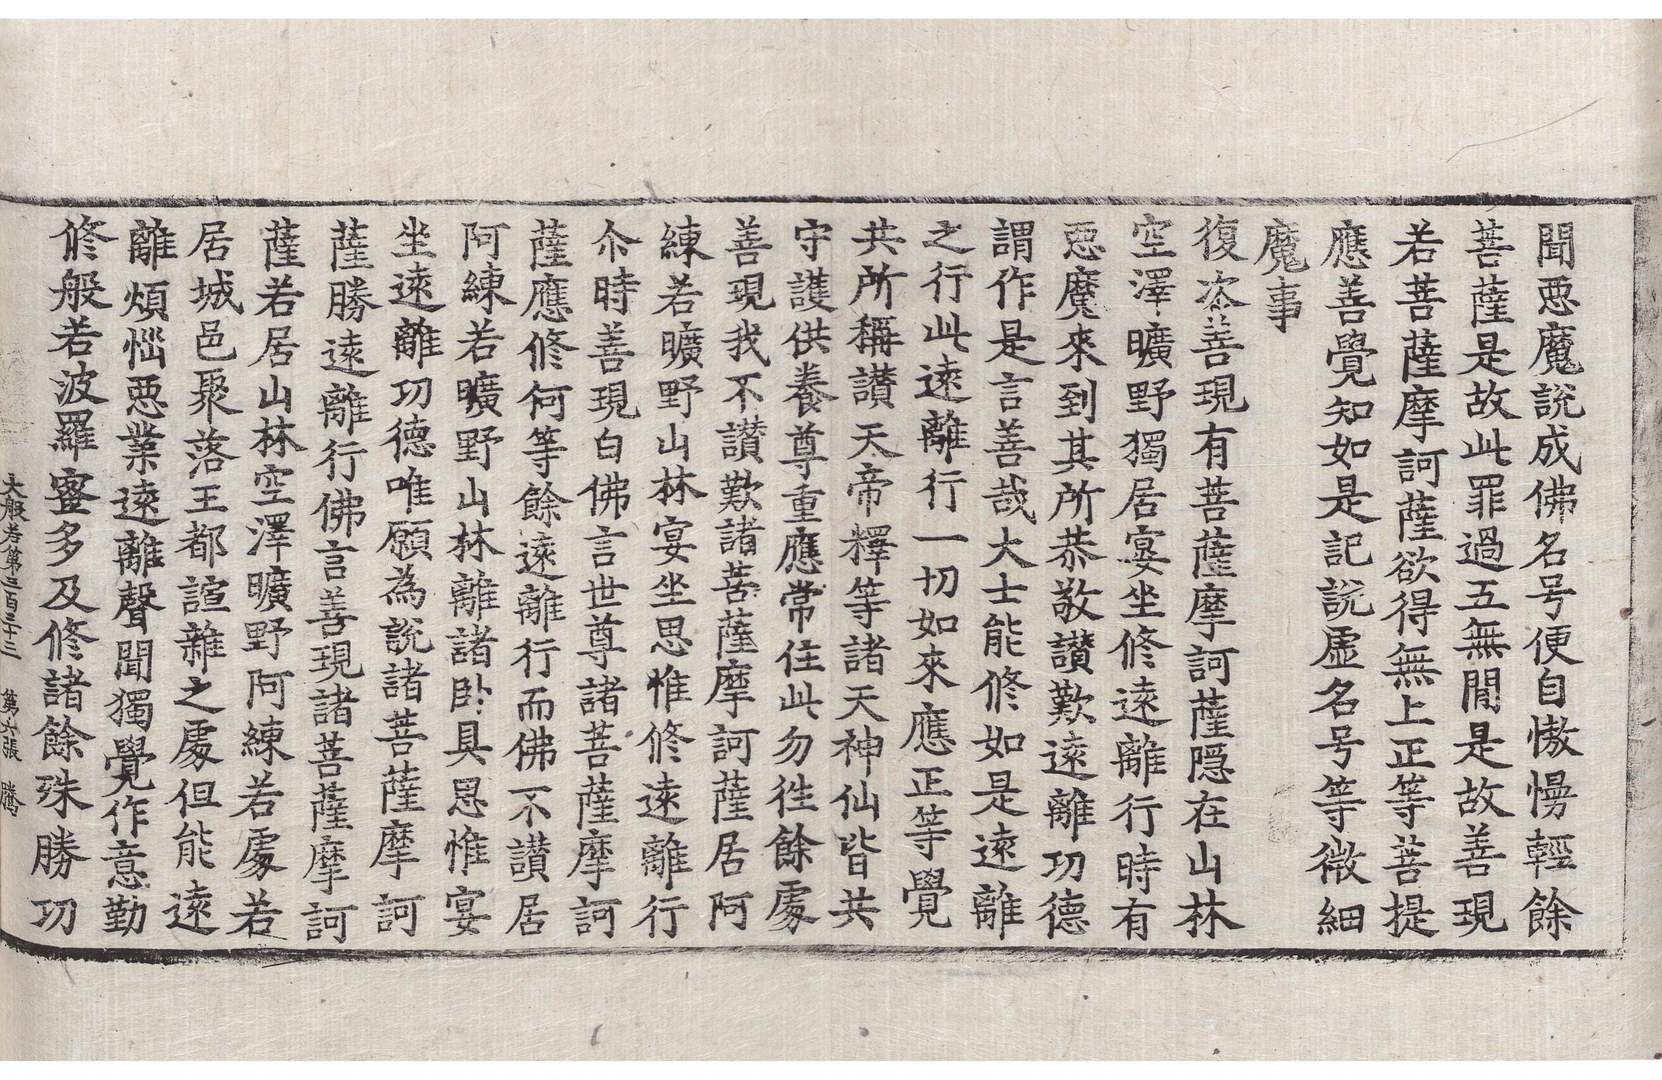 聞惡魔說成佛名号便自慠慢輕餘
菩薩是故此罪過五無間是故善現
若菩薩摩訶薩欲得無上正等菩提
應善覺知如是記說虛名号等微細
魔事
復次善現有菩薩摩訶薩隱在山林
空澤曠野獨居宴坐修遠離行時有
惡魔來到其所恭敬讚歎遠離功德
謂作是言善哉大士能修如是遠離
之行此遠離行一切如來應正等覺
共所稱讚天帝釋等諸天神仙皆共
守護供養尊重應常住此勿往餘處
善現我不讚歎諸菩薩摩訶薩居阿
練若曠野山林宴坐思惟修遠離行
尒時善現白佛言世尊諸菩薩摩訶
薩應修何等餘遠離行而佛不讚居
阿練若曠野山林離諸卧具思惟宴
坐遠離功德唯願為說諸菩薩摩訶
薩勝遠離行佛言善現諸菩薩摩訶
薩若居山林空澤曠野阿練若處若
居城邑聚落王都諠雜之處但能遠
離煩惱惡業遠離聲聞獨覺作意勤
修般若波羅蜜多及修諸餘殊勝功
大般若第三百三十三 第六張 騰